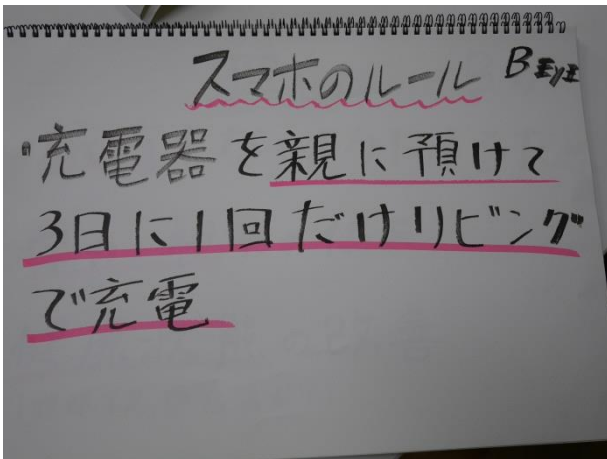 スマホのルール
・充電器を親に預けて
3日に1回だけリビング
で充電